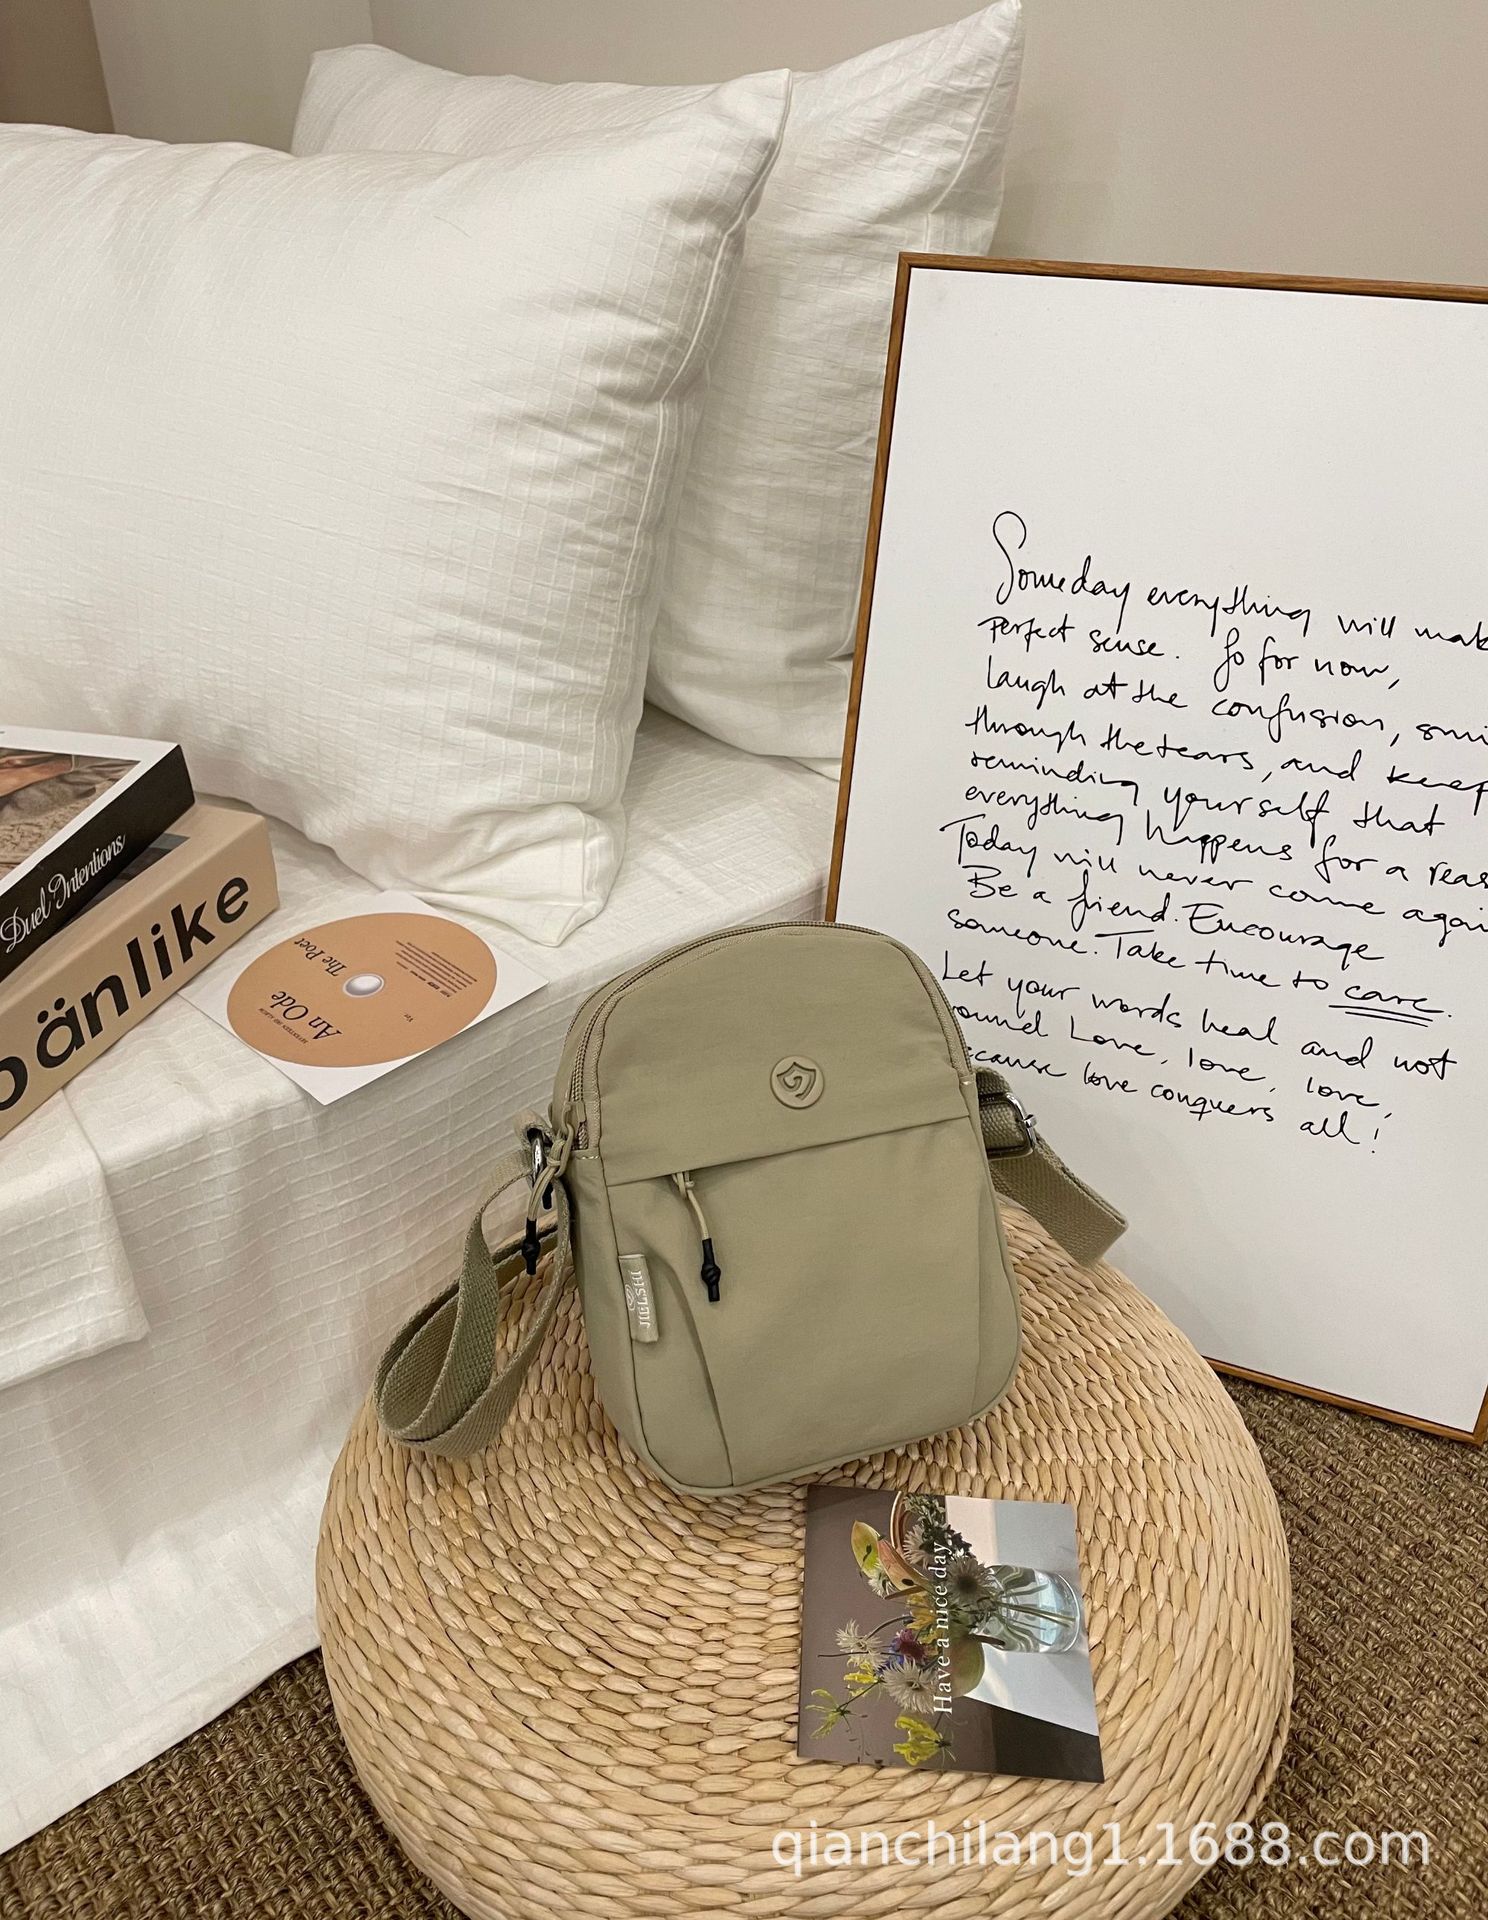 Someday everything will mak
perfect sense. So for now,
laugh at the confusion, smi
through the tears, and keep
reminding yourself that
everything happens for a reas
Today will never come agai
Be a friend. Encourage
someone. Take time to care.
Let your words heal and not
ound Love, love, love,
ecause love conquers all!
Duel Intentions
bänlike
An Ode
The Poet
Ver.
JIELSHI
Have a nice day
qianchilang1.1688.com